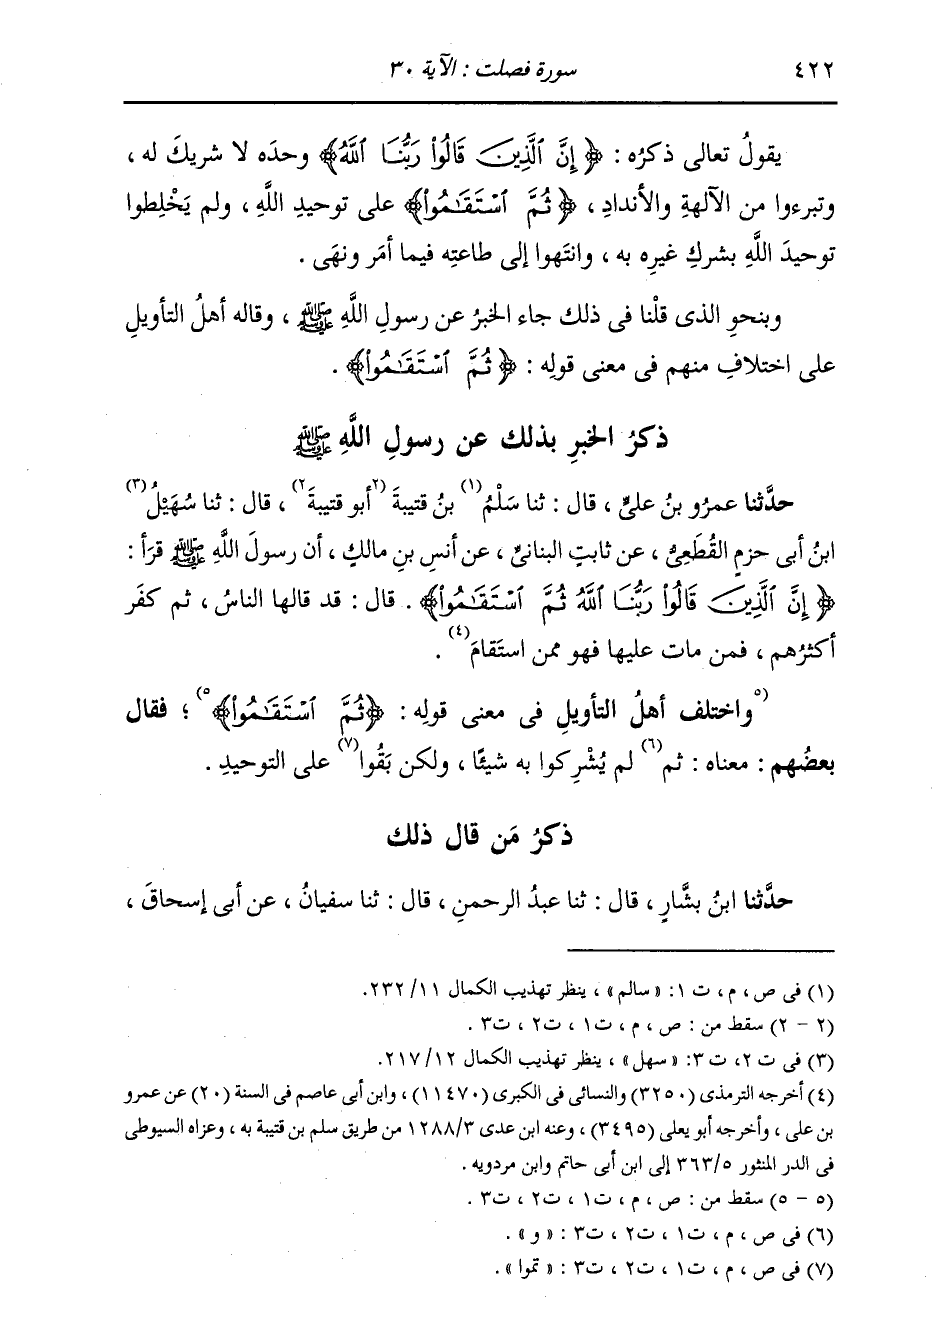 ٤٢٢ سورة فصلت : الآية ٣٠
يقولُ تعالى ذكرُه : ﴿ إِنَّ ٱلَّذِينَ قَالُوا۟ رَبُّنَا ٱللَّهُ﴾ وحدَه لا شريكَ له ،
وتبرءوا من الآلهةِ والأندادِ ، ﴿ ثُمَّ ٱسْتَقَـٰمُوا۟﴾ على توحيدِ اللَّهِ ، ولم يَخْلِطوا
توحيدَ اللَّهِ بشركِ غيرِه به ، وانتَهوا إلى طاعتِه فيما أمَر ونهَى .
وبنحوِ الذى قلْنا فى ذلك جاء الخبرُ عن رسولِ اللَّهِ ﷺ ، وقاله أهلُ التأويلِ
على اختلافٍ منهم فى معنى قولِه : ﴿ ثُمَّ ٱسْتَقَـٰمُوا۟﴾ .
ذكرُ الخبرِ بذلك عن رسولِ اللَّهِ ﷺ
حدَّثنا عمرُو بنُ علىٍّ ، قال : ثنا سَلْمُ(١) بنُ قتيبةَ (٢أبو قتيبةَ٢) ، قال : ثنا سُهَيْلُ(٣)
ابنُ أبى حزمٍ القُطَعِىُّ ، عن ثابتٍ البنانىِّ ، عن أنسِ بنِ مالكٍ ، أن رسولَ اللَّهِ ﷺ قرَأ :
﴿ إِنَّ ٱلَّذِينَ قَالُوا۟ رَبُّنَا ٱللَّهُ ثُمَّ ٱسْتَقَـٰمُوا۟﴾ . قال : قد قالها الناسُ ، ثم كفَر
أكثرُهم ، فمن مات عليها فهو ممن استَقامَ(٤) .
(٥واختلف أهلُ التأويلِ فى معنى قولِه : ﴿ثُمَّ ٱسْتَقَـٰمُوا۟﴾٥) ؛ فقال
بعضُهم : معناه : ثم(٦) لم يُشْرِكوا به شيئًا ، ولكن بَقُوا(٧) على التوحيدِ .
ذكرُ مَن قال ذلك
حدَّثنا ابنُ بشَّارٍ ، قال : ثنا عبدُ الرحمنِ ، قال : ثنا سفيانُ ، عن أبى إسحاقَ ،
(١) فى ص ، م ، ت ١ : « سالم » ، ينظر تهذيب الكمال ١١/ ٢٣٢.
(٢ - ٢) سقط من : ص ، م ، ت١ ، ت٢ ، ت٣ .
(٣) فى ت ٢، ت ٣: « سهل » ، ينظر تهذيب الكمال ١٢/ ٢١٧.
(٤) أخرجه الترمذى (٣٢٥٠) والنسائى فى الكبرى (١١٤٧٠) ، وابن أبى عاصم فى السنة (٢٠) عن عمرو
بن على ، وأخرجه أبو يعلى (٣٤٩٥) ، وعنه ابن عدى ١٢٨٨/٣ من طريق سلم بن قتيبة به ، وعزاه السيوطى
فى الدر المنثور ٣٦٣/٥ إلى ابن أبى حاتم وابن مردويه .
(٥ - ٥) سقط من : ص ، م ، ت١ ، ت٢ ، ت٣ .
(٦) فى ص ، م ، ت١ ، ت٢ ، ت٣ : « و » .
(٧) فى ص ، م ، ت١ ، ت٢ ، ت٣ : « تموا » .